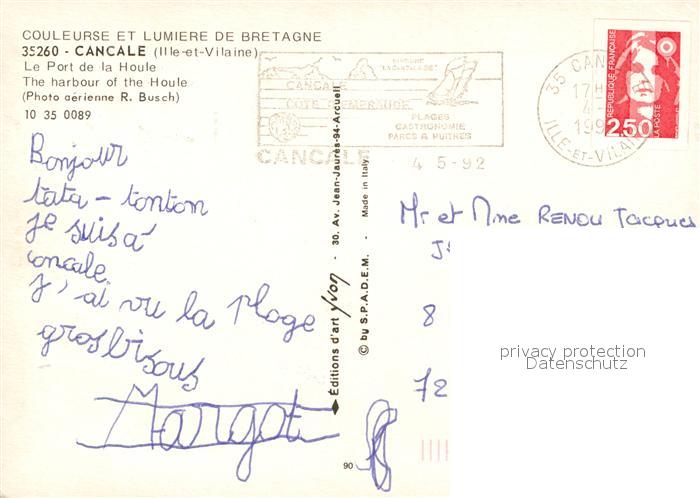 COULEURSE ET LUMIERE DE BRETAGNE
35260 - CANCALE (Ille-et-Vilaine)
Le Port de la Houle
The harbour of the Houle
(Photo aérienne R. Busch)
10 35 0089
Bonjour
tata - tonton
je suis á
concale
j'ai vu la plage
gros bisous
Margot
CANCALE
CÔTE D'EMERAUDE
PLAGES
GASTRONOMIE
PARCS A HUITRES
CANCALE
4 5 - 92
35 CANC
17H
4-
199
ILLE-ET-VILAIN
RÉPUBLIQUE FRANÇAISE
LA POSTE
2,50
Editions d'art Yvon - 30. Av. Jean-Jaurès-94-Arcueil
© by S.P.A.D.E.M. - Made in Italy
90
Mr et Mme RENOU Jacques
8
72
privacy protection
Datenschutz